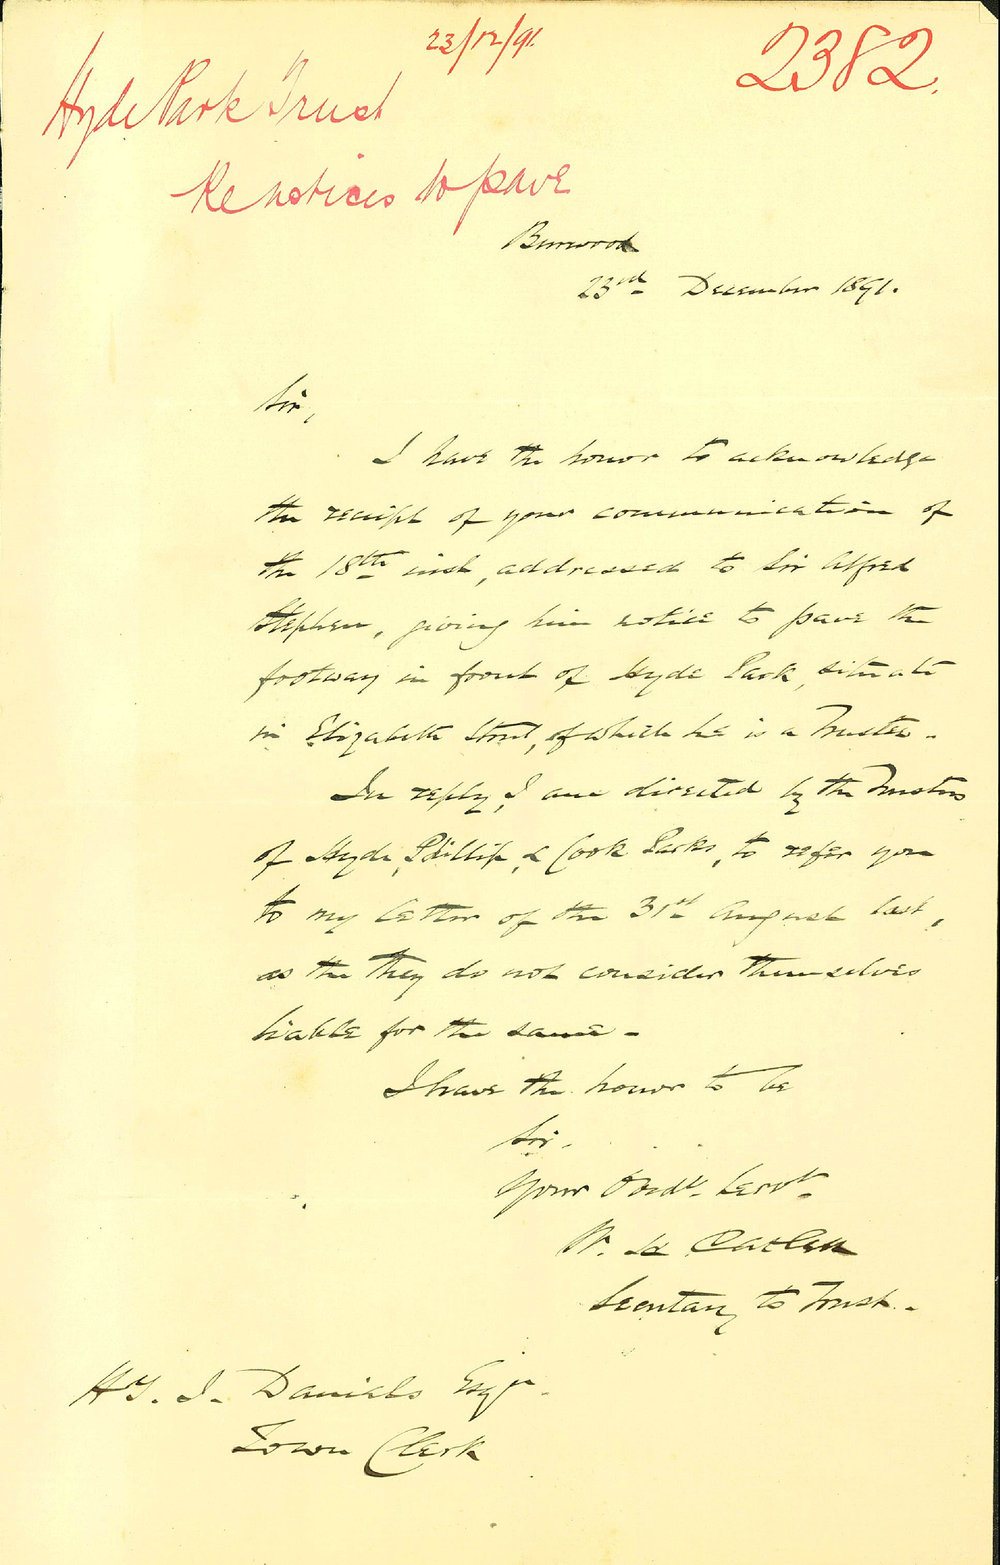 23/12/91.
2382.
Hyde Park Trust
Re notices to pave
Burwood
23rd December 1891.
Sir,
I have the honor to acknowledge
the receipt of your communication of
the 18th inst, addressed to Sir Alfred
Stephen, giving him notice to pave the
footway in front of Hyde Park, situate
in Elizabeth Street, of which he is a Trustee.
In reply, I am directed by the Trustees
of Hyde, Phillip, & Cook Parks, to refer you
to my letter of the 31st August last,
as the they do not consider themselves
liable for the same -
I have the honor to be
Sir.
Your Obedt. Servt.
W. H Catlett
Secretary to Trust.
Hy. J. Daniels Esqr.
Town Clerk